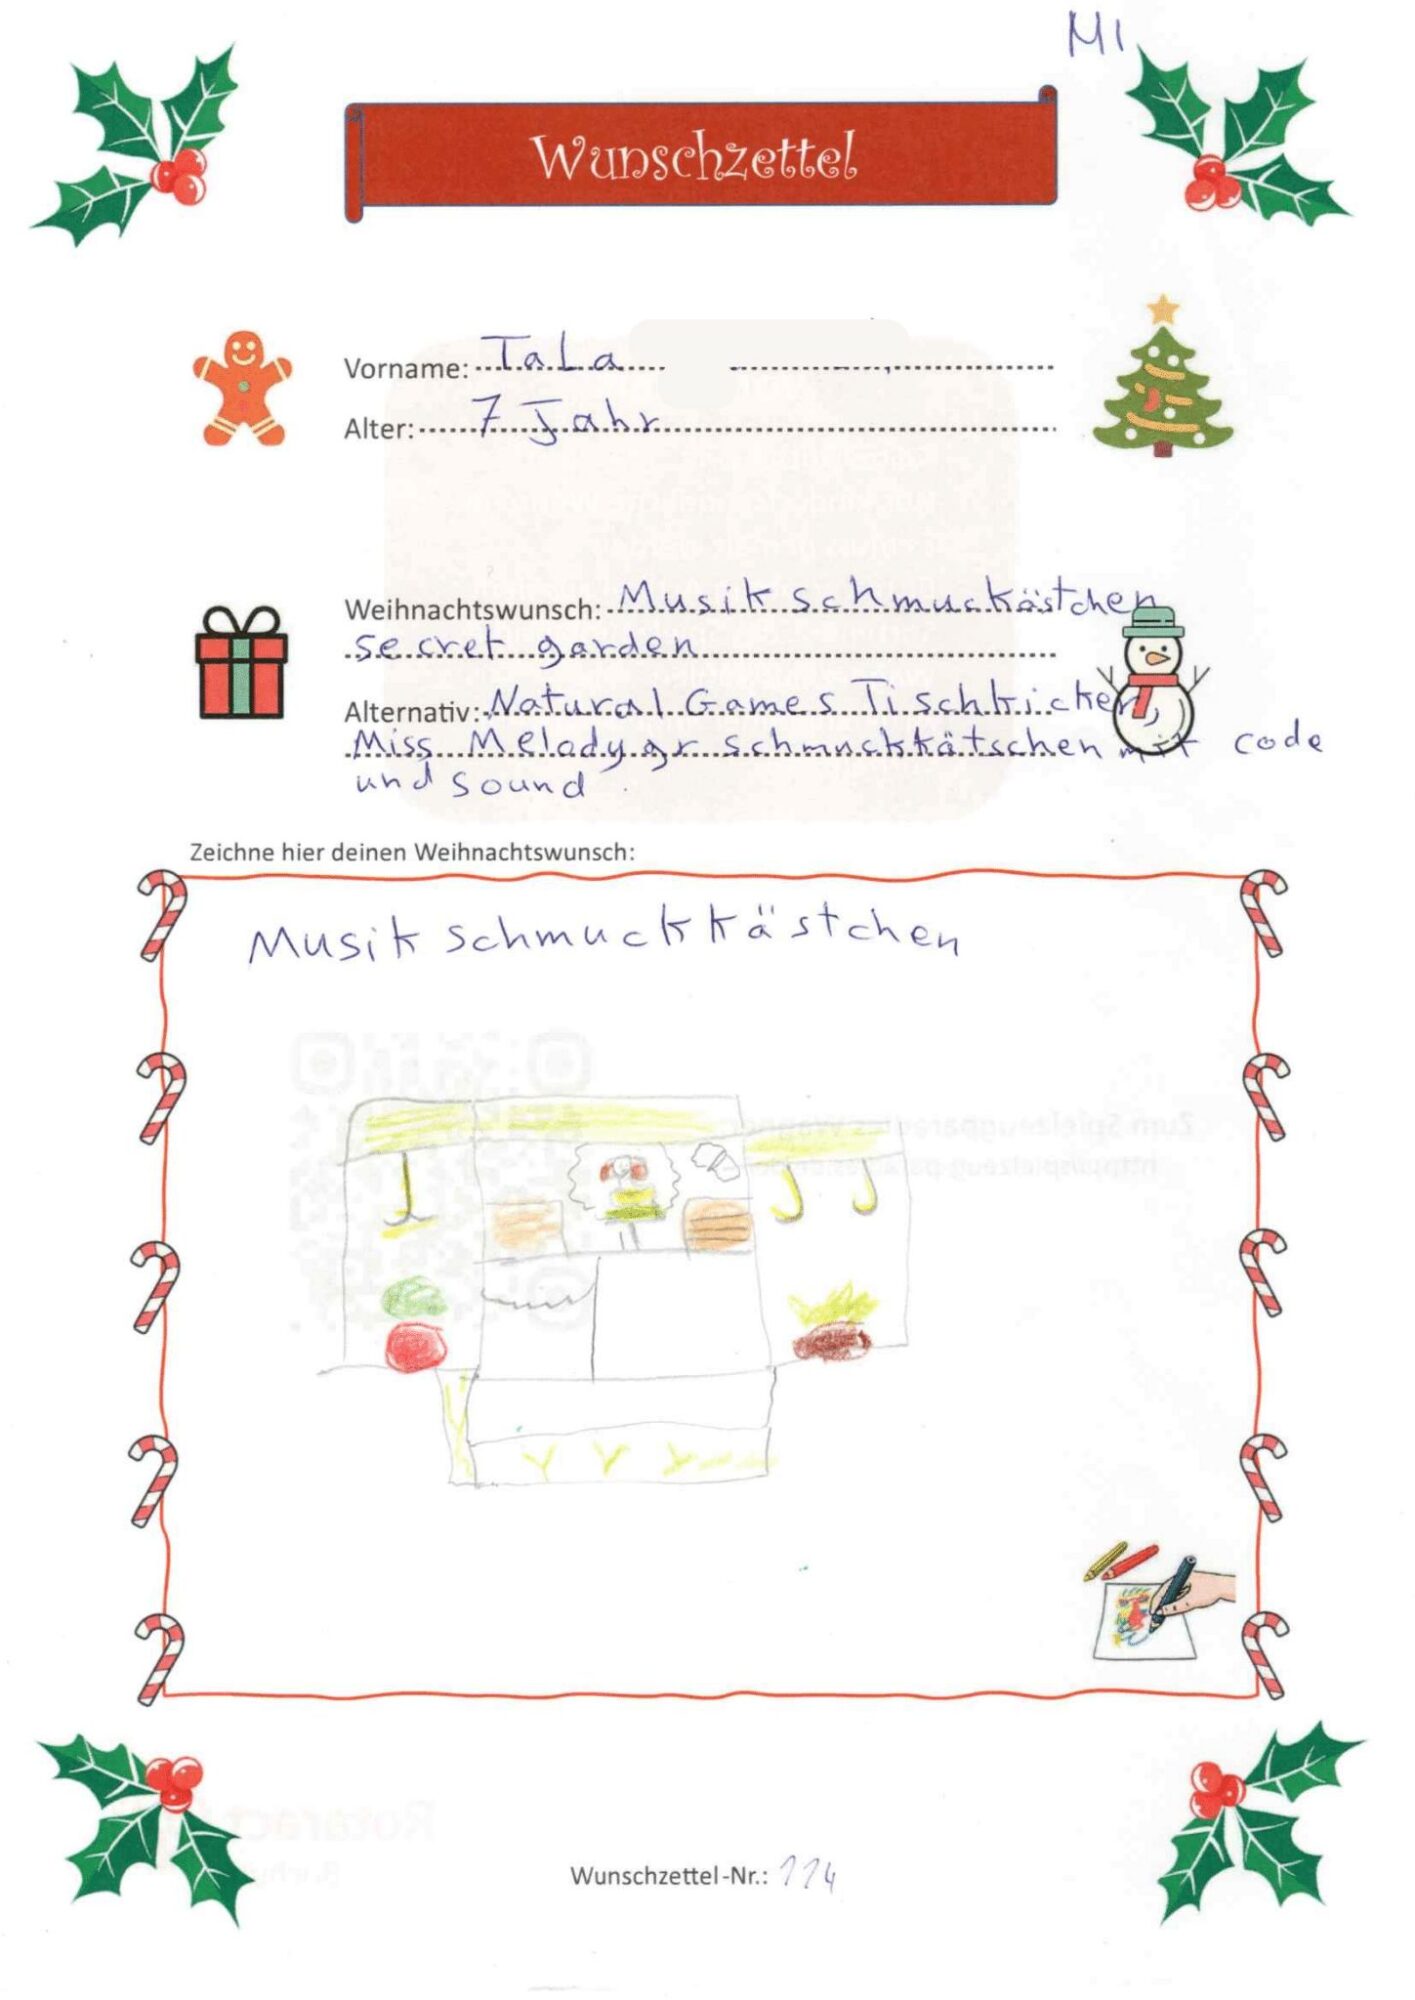 MI
Wunschzettel
Vorname: TaLa
Alter: 7 Jahr
Weihnachtswunsch: Musik schmuckästchen
secret garden
Alternativ: Natural Games Tischkicker,
Miss Melody gr schmuckkätschen mit code
und sound.
Zeichne hier deinen Weihnachtswunsch:
Musik schmuckkästchen
Wunschzettel-Nr.: 114